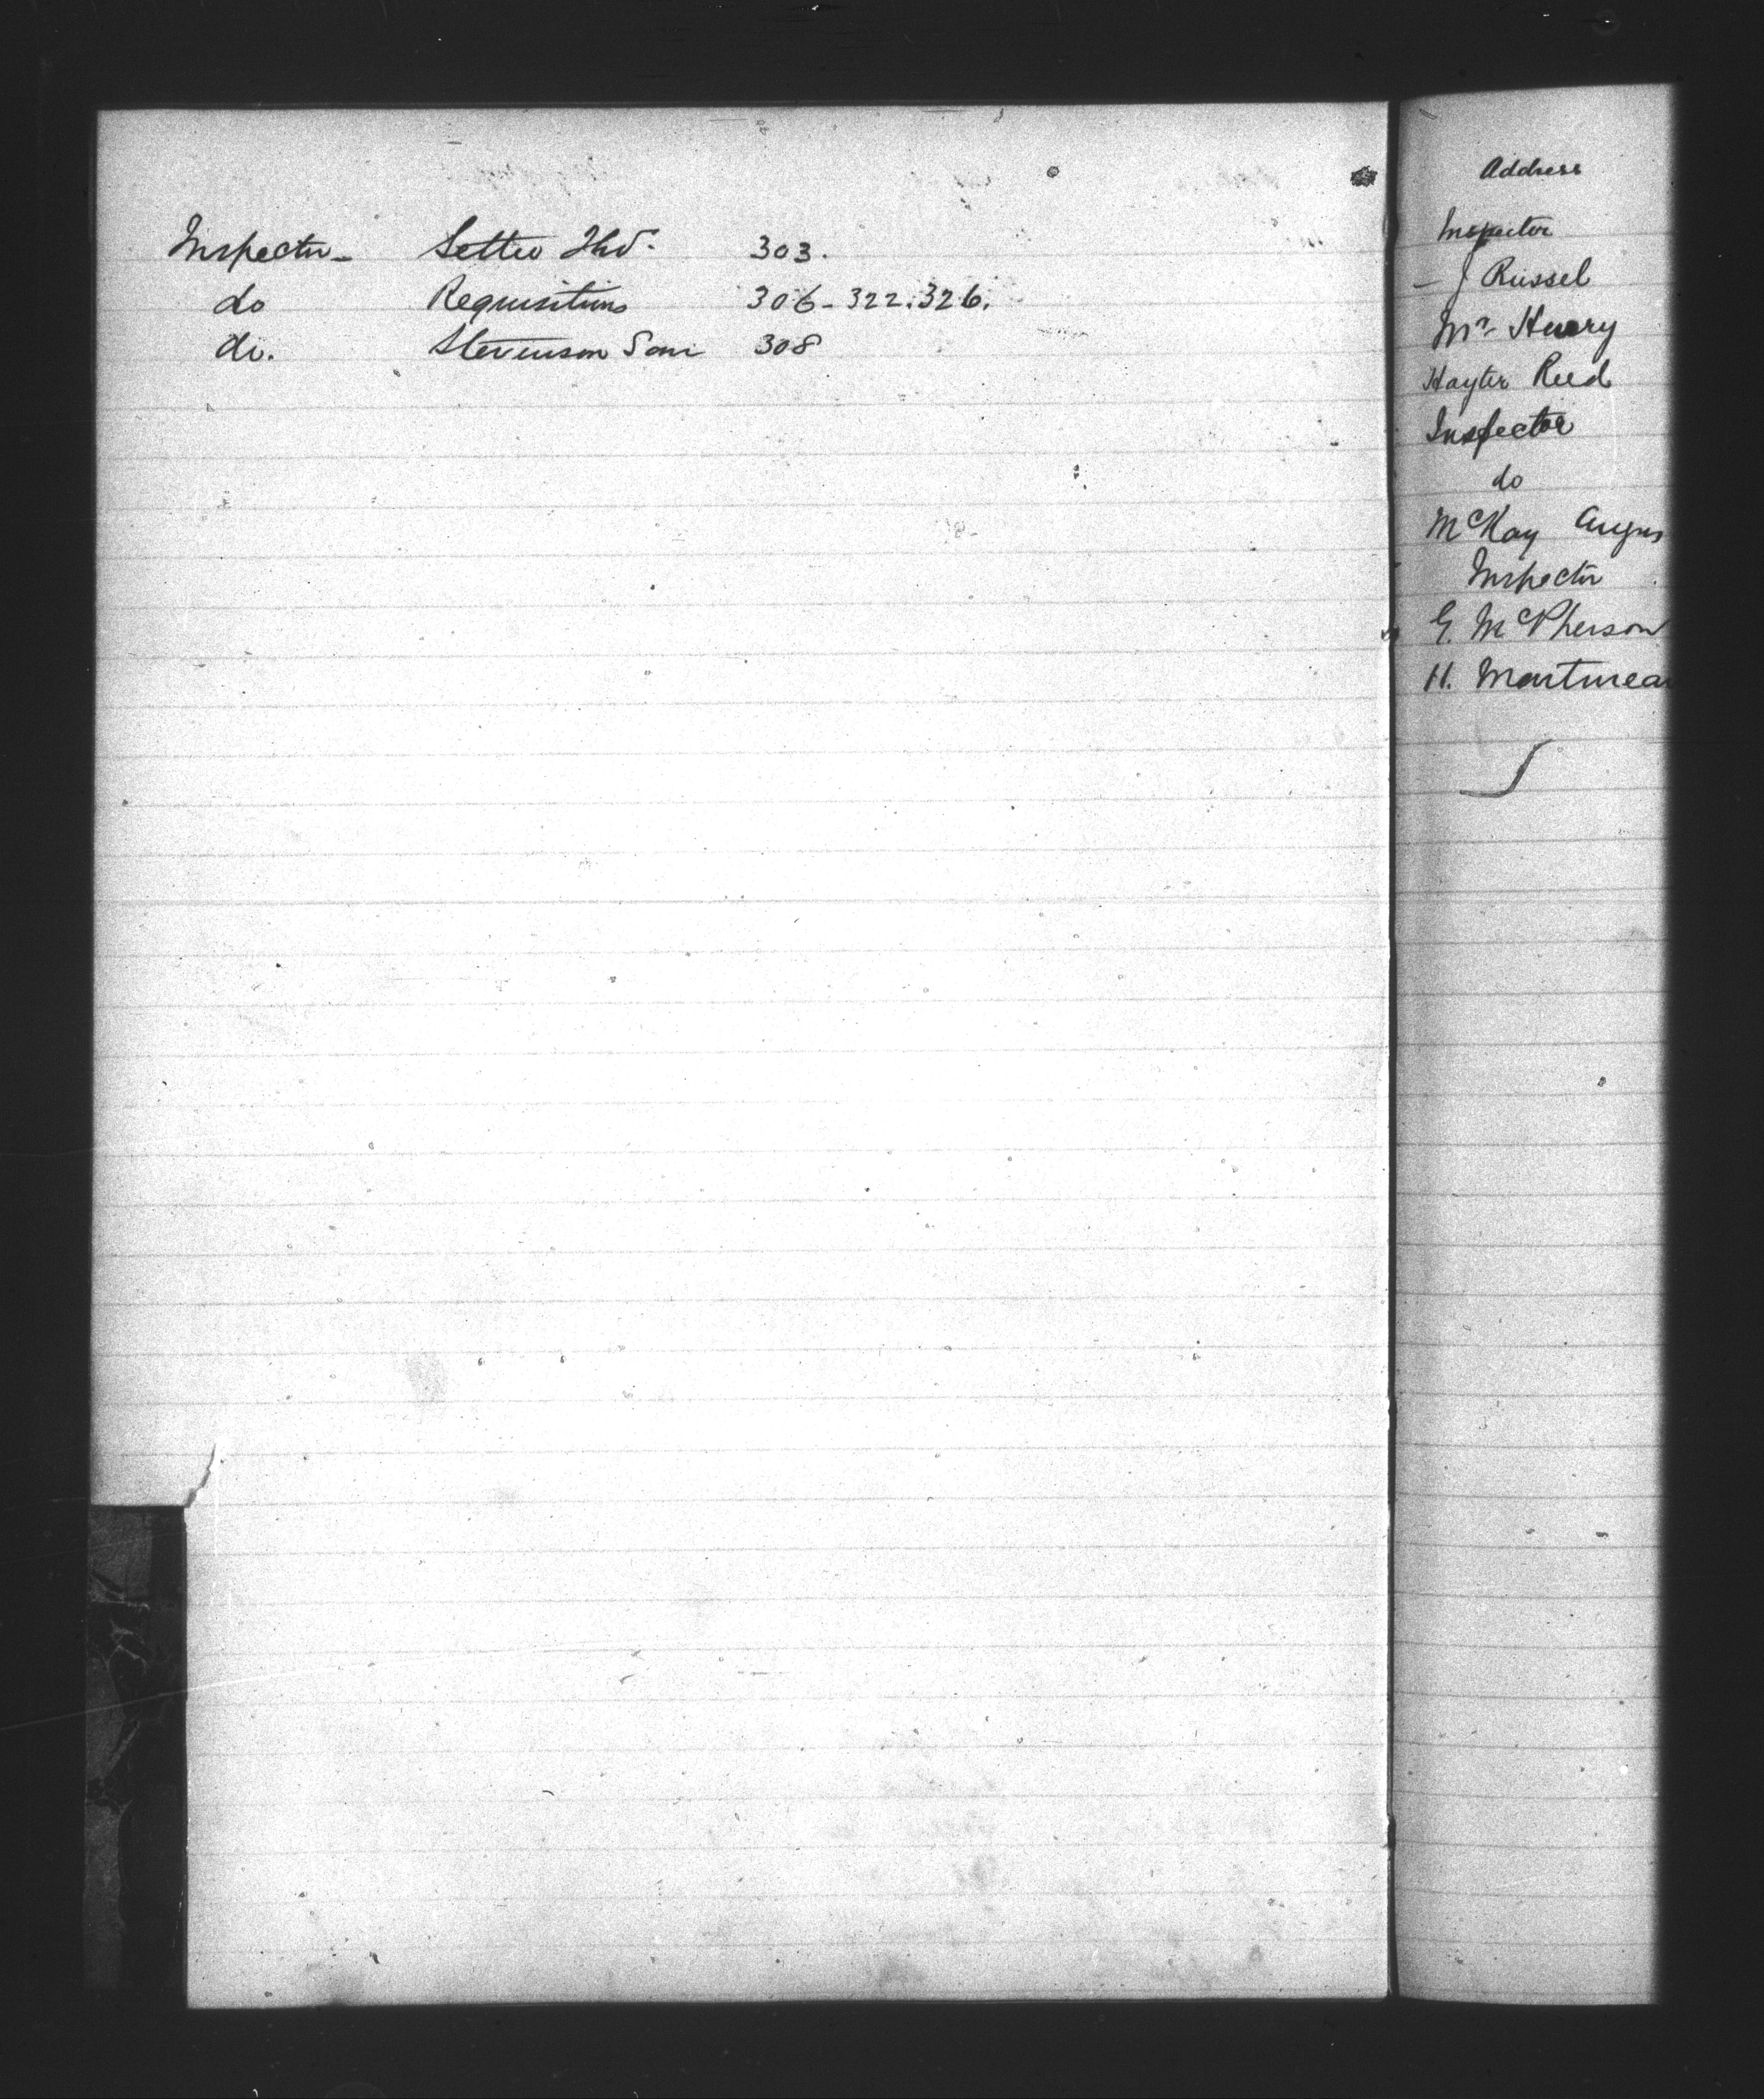 Inspector - Settee Thos. 303.
do Requisitions 306 - 322. 326.
do. Stevenson Sam 308
Address
Inspector
- J Russel
Mr Henry
Hayter Reed
Inspector
do
McKay Angus
Inspector
G. McPherson
H. Martineau